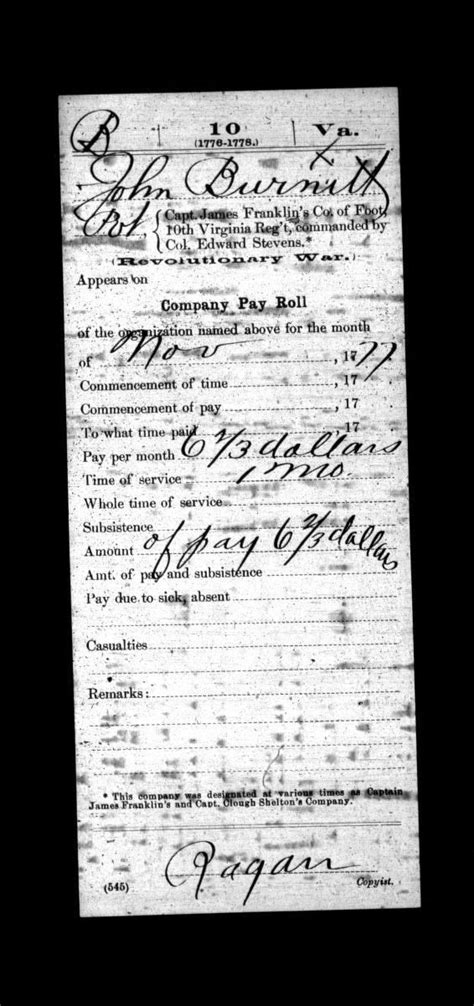 B 10 Va.
(1776-1778.)
John Burnitt
Pvt. { Capt. James Franklin's Co. of Foot,
10th Virginia Reg't, commanded by
Col. Edward Stevens.*
(Revolutionary War.)
Appears on
Company Pay Roll
of the organization named above for the month
of Nov , 1777
Commencement of time , 17
Commencement of pay , 17
To what time paid , 17
Pay per month 6 2/3 dollars
Time of service 1 mo.
Whole time of service
Subsistence
Amount of pay 6 2/3 dollars
Amt. of pay and subsistence
Pay due to sick, absent
Casualties
Remarks:
* This company was designated at various times as Captain
James Franklin's and Capt. Clough Shelton's Company.
Ragan
(545) Copyist.